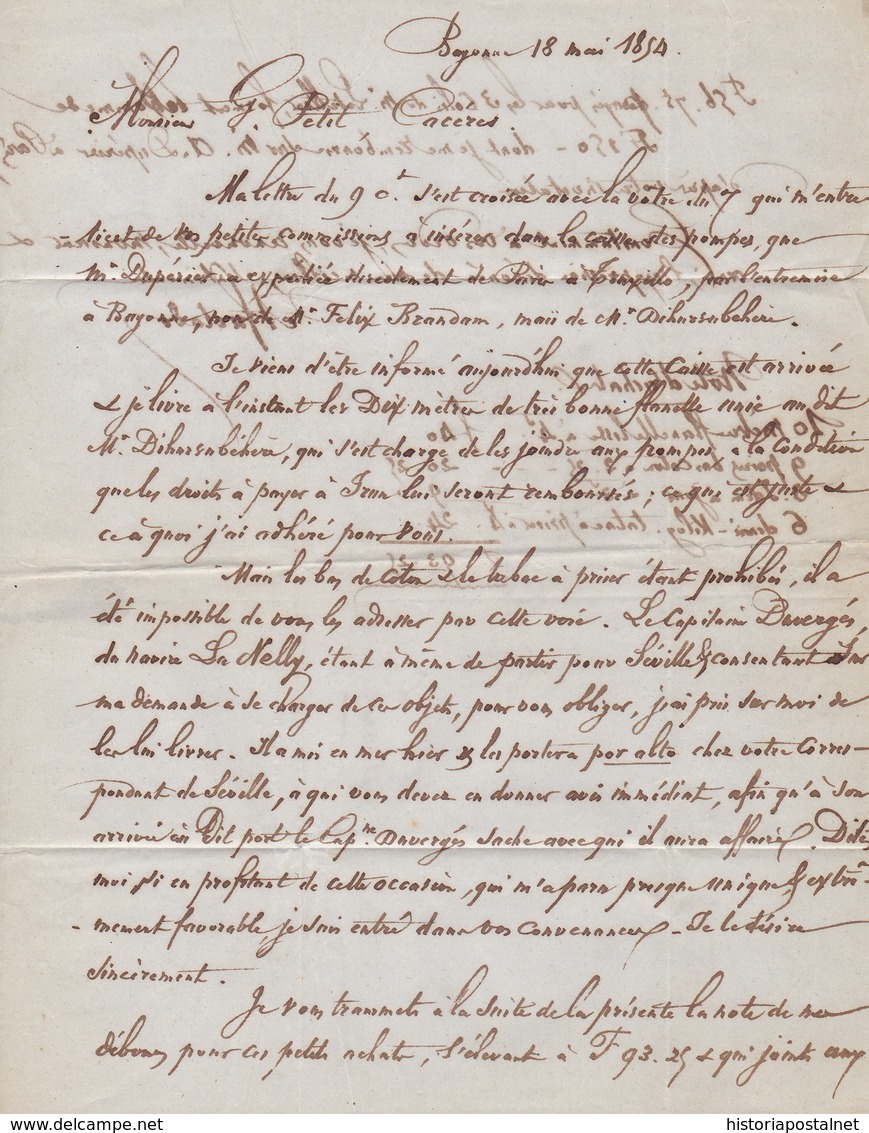 Bayonne 18 mai 1854.
Monsieur G Petit Caceres
Ma lettre du 9 ct s'est croisée avec la votre du 7 qui m'entre
tient de vos petites commissions à insérer dans la caisse des pompes, que
Mr Dupérier a expédiée directement de Paris à Truxillo, par l'entremise
à Bayonne, non de Mr Felix Brandam, mais de Mr Dihursubéhère.
Je viens d'être informé aujourd'hui que cette caisse est arrivée
& je livre à l'instant les Dix mètres de très bonne flanelle unie au dit
Mr Dihursubéhère, qui s'est chargé de les joindre aux pompes, à la condition
que les droits à payer à Irun lui seront remboursés ; ce qui est juste &
ce à quoi j'ai adhéré pour vous.
Mais les bas de coton & le tabac à priser étant prohibés, il a
été impossible de vous les adresser par cette voie. Le Capitaine Duvergés,
du navire La Nelly, étant à même de partir pour Séville & consentant sur
ma demande à se charger de ces objets, pour vous obliger, j'ai pris sur moi de
les lui livrer. Il a mis en mer hier & les portera por alto chez votre corres-
pondant de Séville, à qui vous devez en donner avis immédiat, afin qu'à son
arrivée en dit port le Capne Duvergés sache avec qui il aura affaire. Dites
moi si en profitant de cette occasion, qui m'a paru presque unique & extrê-
-mement favorable, je suis entré dans vos convenances - Je le désire
sincèrement.
Je vous transmets à la suite de la présente la note de mes
débours pour ces petits achats, s'élevant à F 93.25 & qui joints aux
historiapostalnet
www.delcampe.net